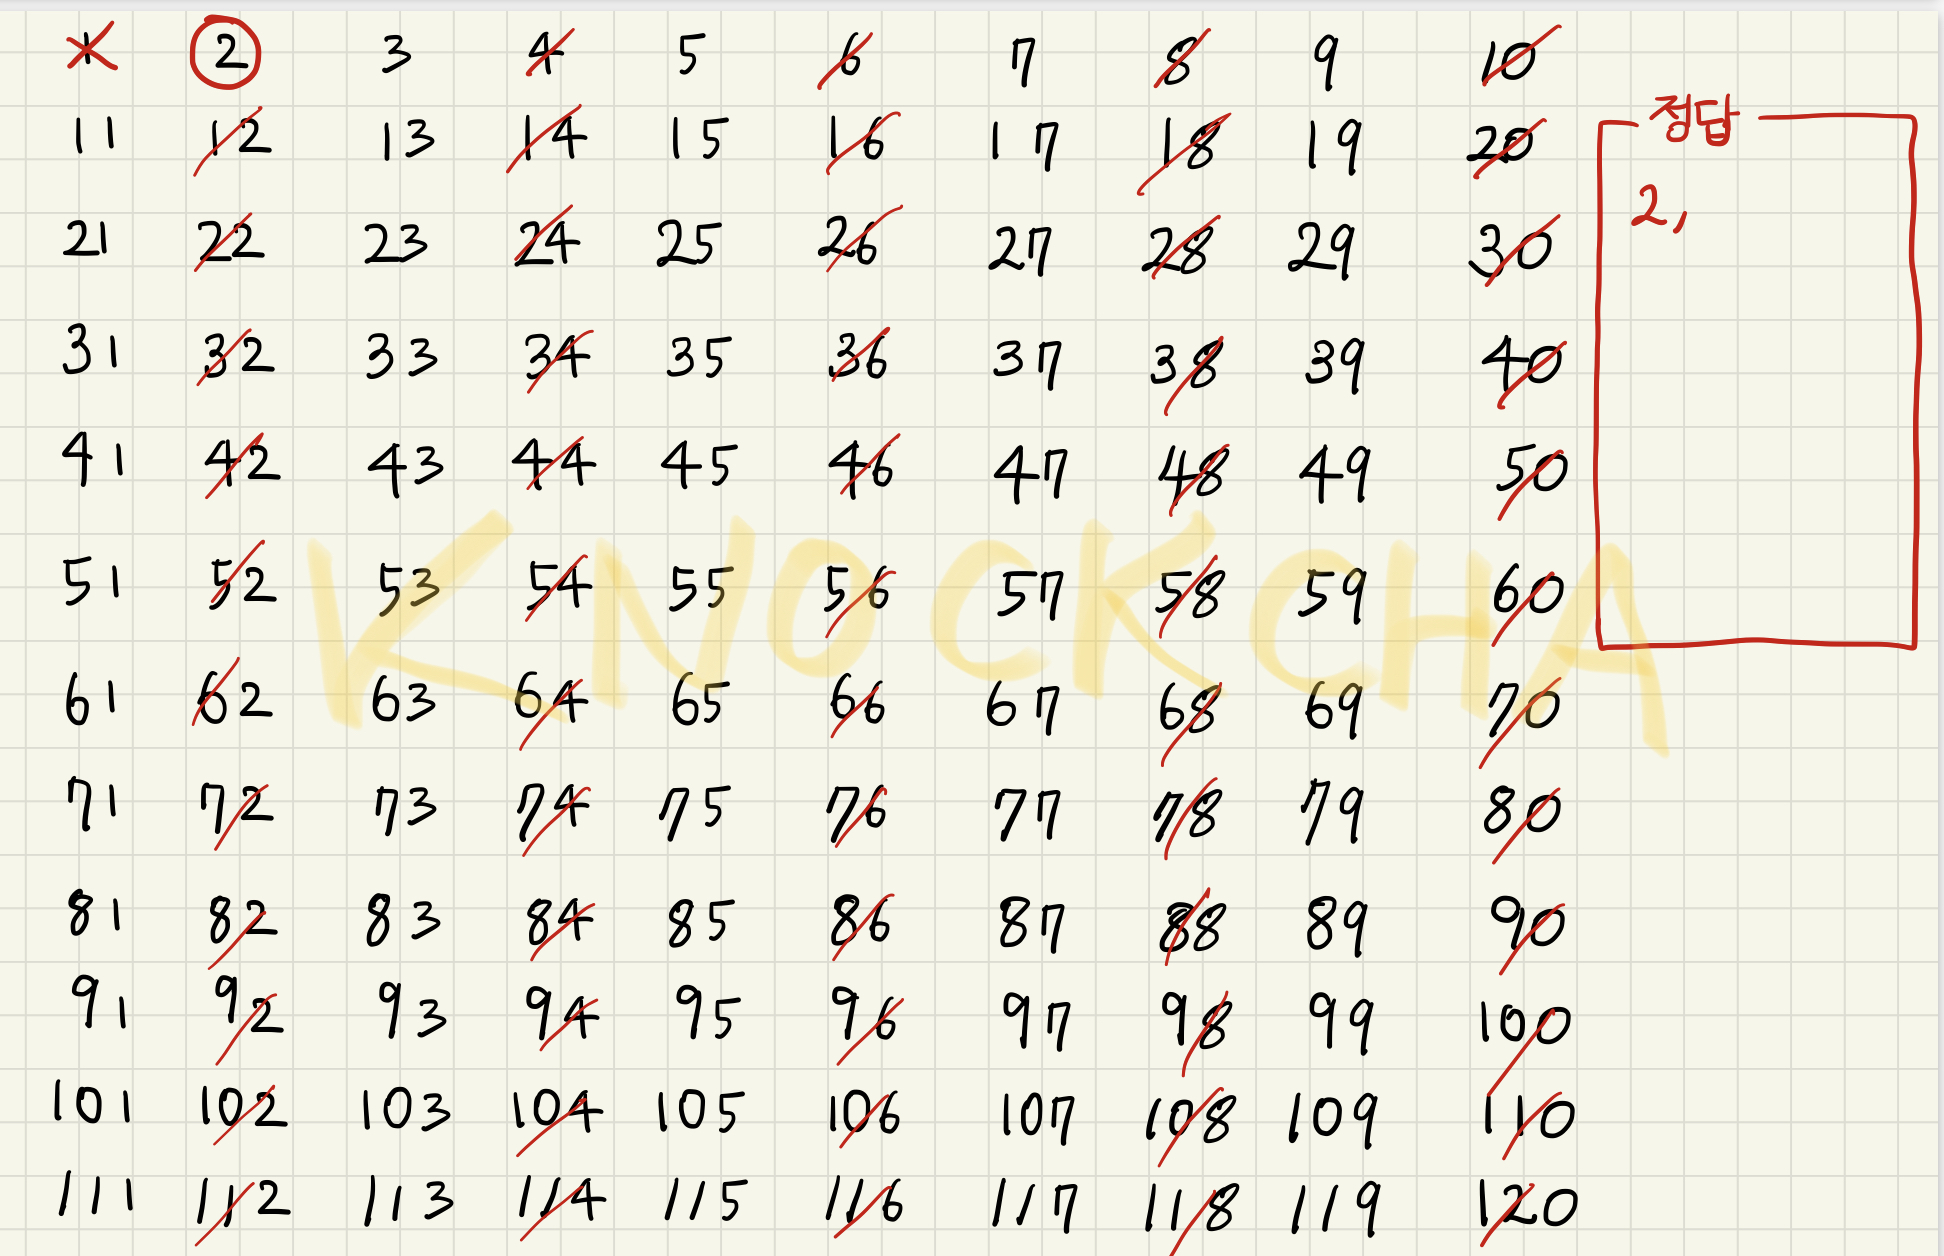 1 2 3 4 5 6 7 8 9 10
정답
11 12 13 14 15 16 17 18 19 20
2,
21 22 23 24 25 26 27 28 29 30
31 32 33 34 35 36 37 38 39 40
41 42 43 44 45 46 47 48 49 50
51 52 53 54 55 56 57 58 59 60
KNOCKCHA
61 62 63 64 65 66 67 68 69 70
71 72 73 74 75 76 77 78 79 80
81 82 83 84 85 86 87 88 89 90
91 92 93 94 95 96 97 98 99 100
101 102 103 104 105 106 107 108 109 110
111 112 113 114 115 116 117 118 119 120